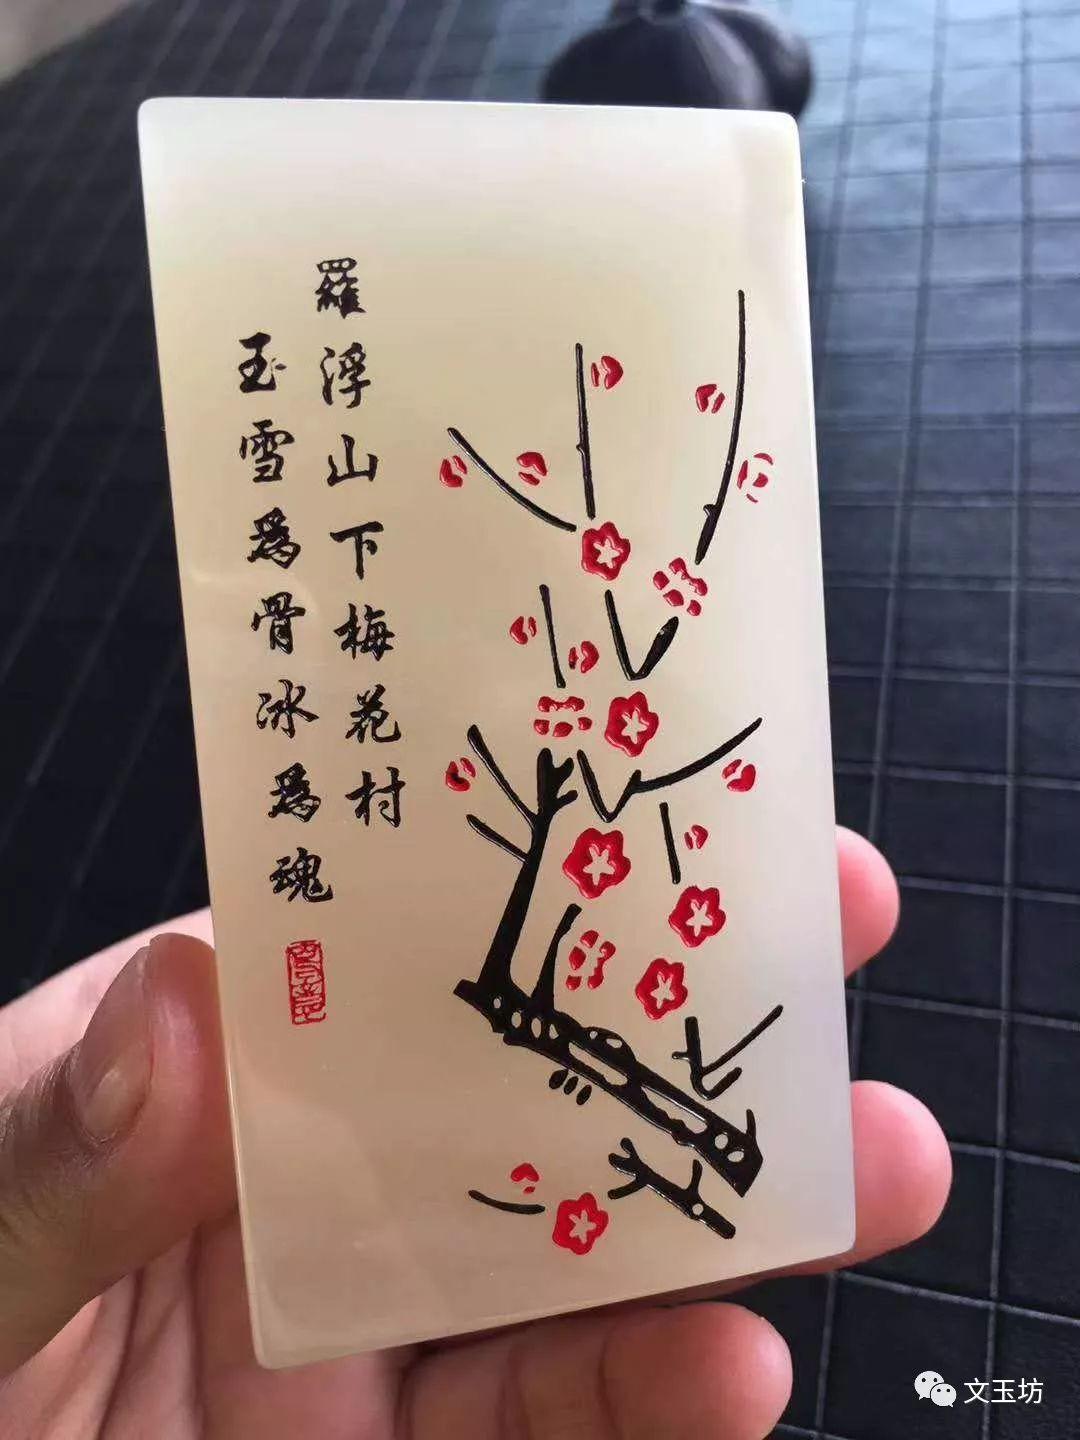 羅浮山下梅花村
玉雪為骨冰為魂
文玉坊